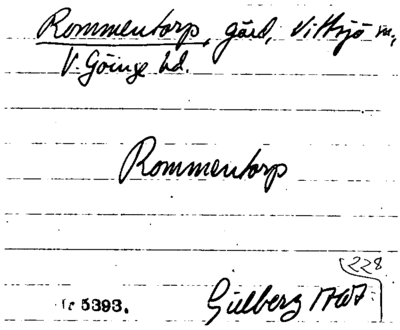 Rommentorp, gård, Vittsjö sn,
V. Göinge hd.
Rommentorp
228
5393. Gillberg 1767